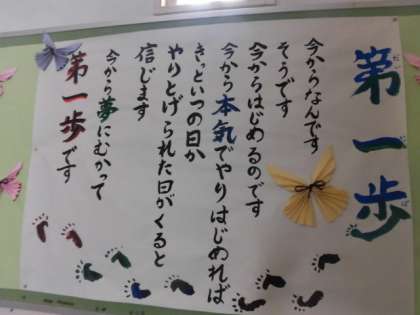 第一歩
今からなんです
そうです
今からはじめるのです
今から本気でやりはじめれば
きっといつの日か
やりとげられた日がくると
信じます
今から夢にむかって
第一歩です